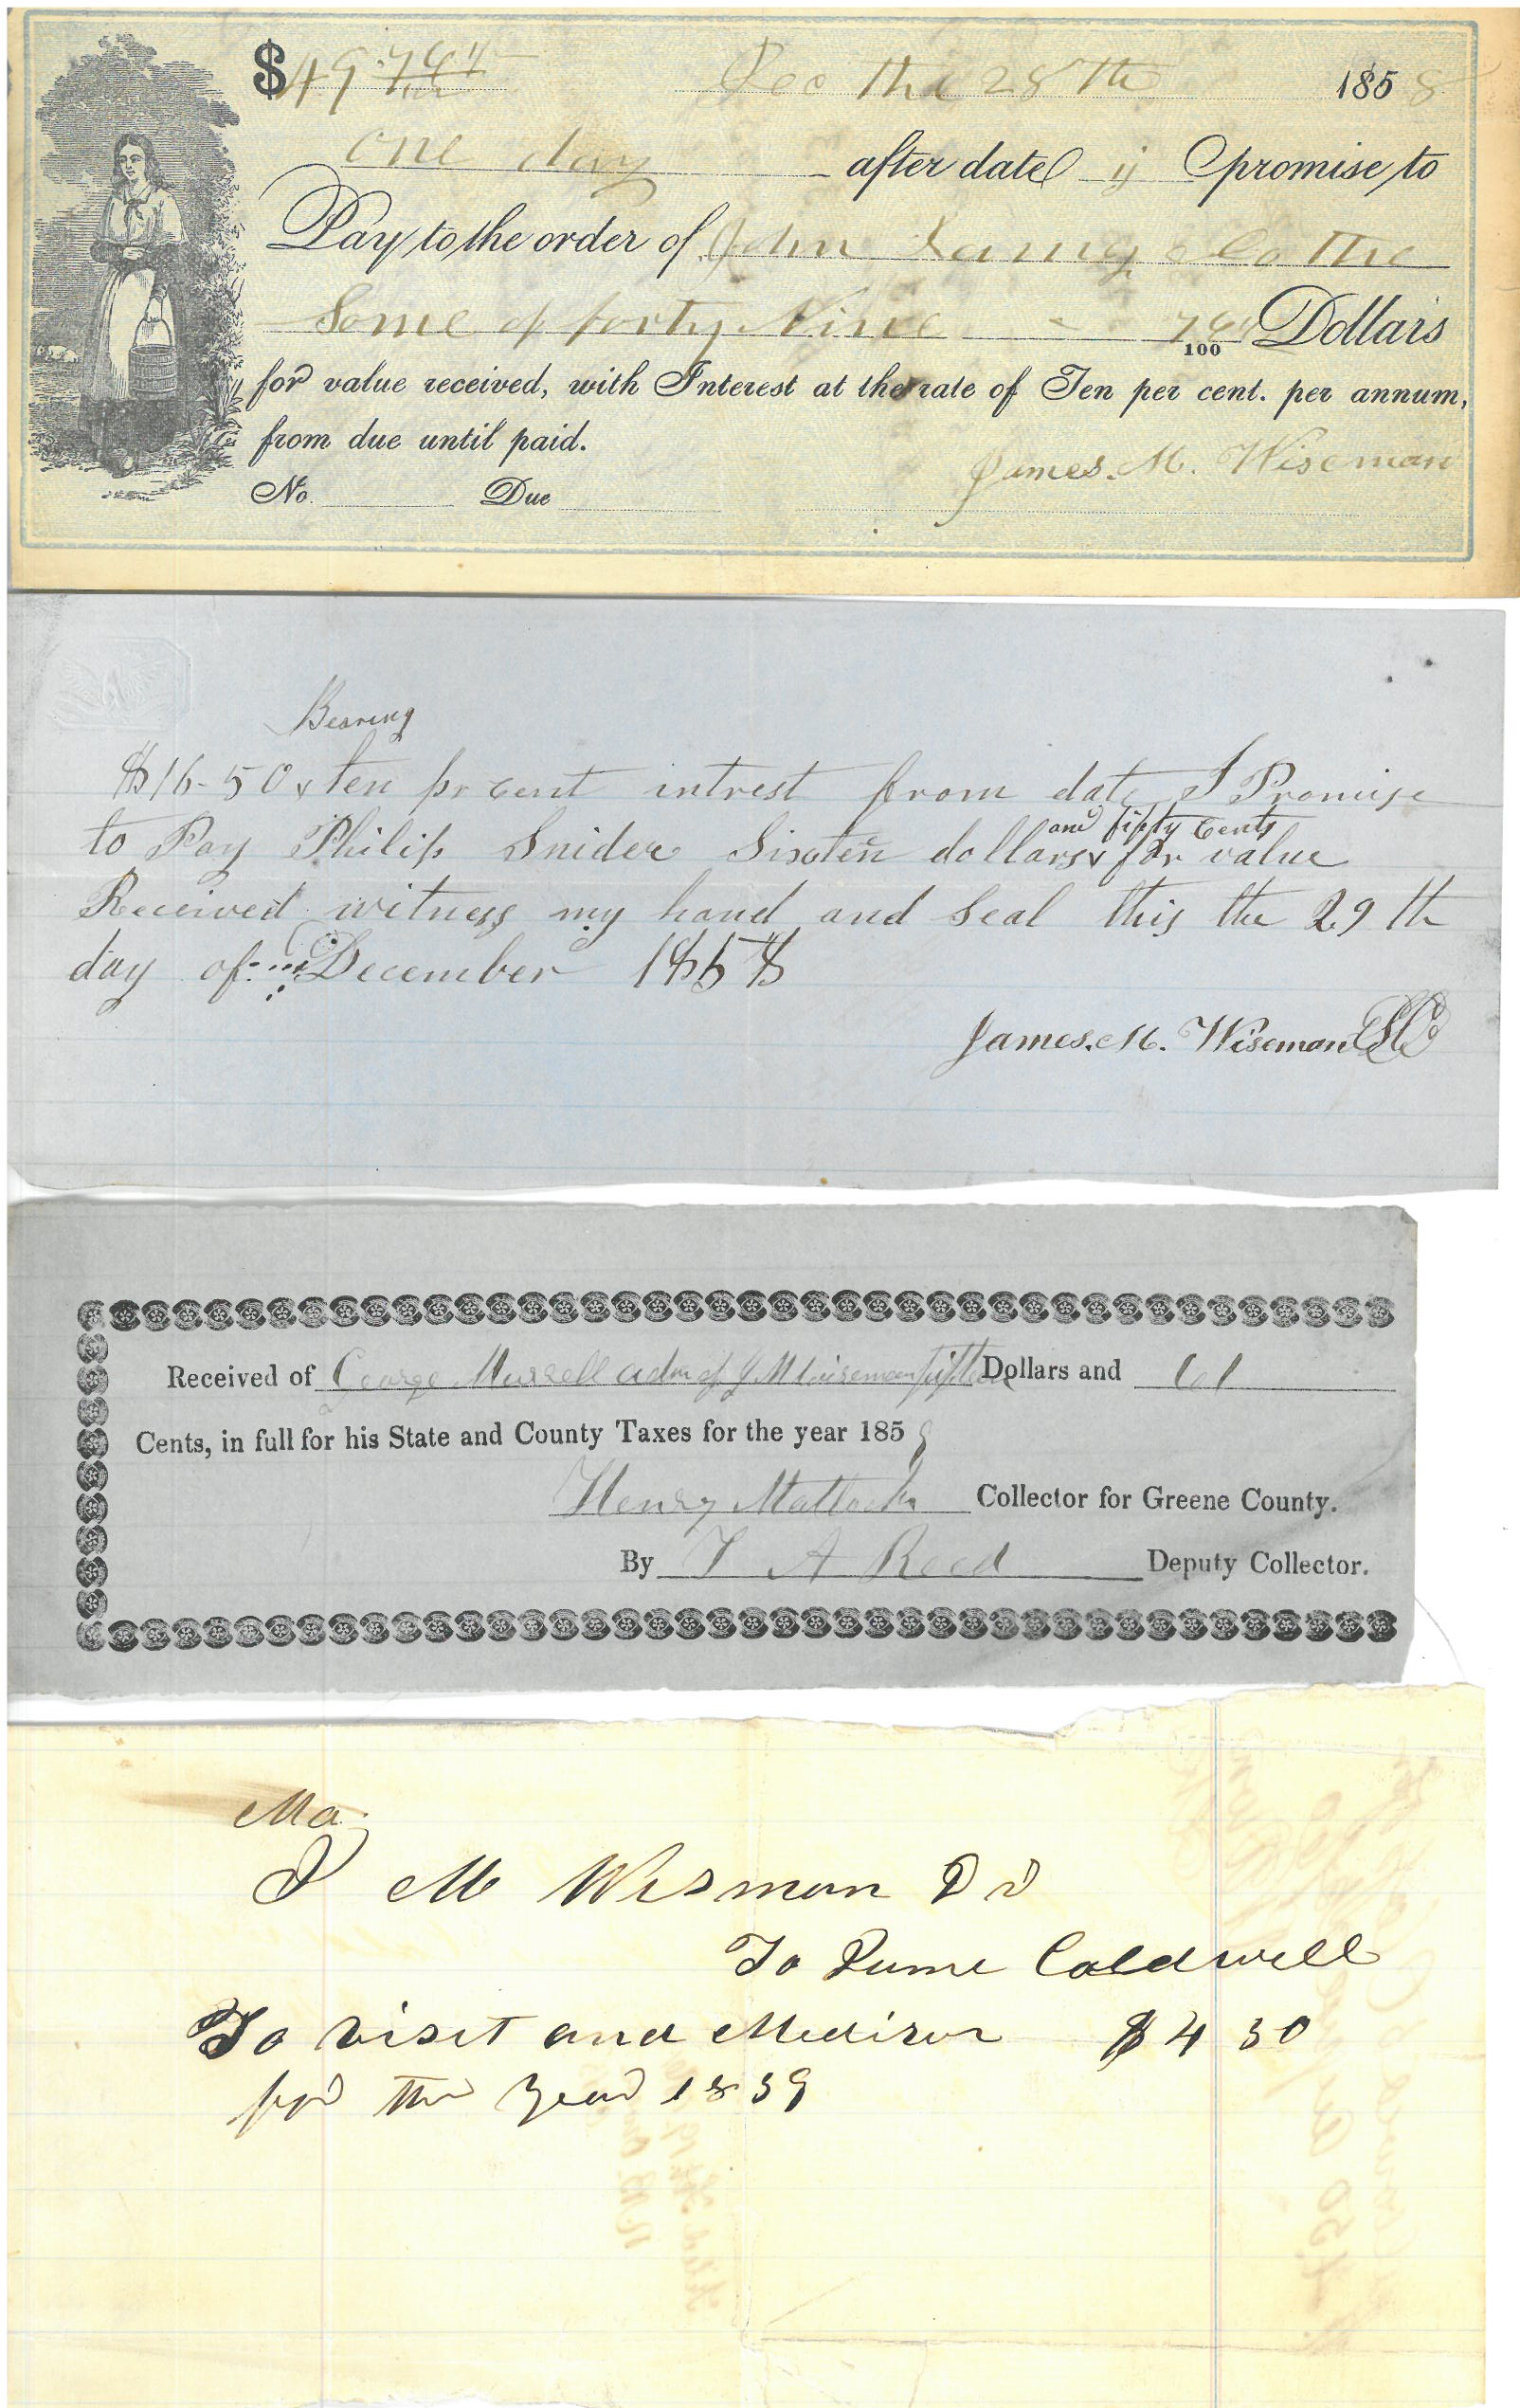 $49.74
Dec the 28th 1858
one day after date ij promise to
Pay to the order of John Laney & Co the
Some of forty Nine - 74/100 Dollars
for value received, with Interest at the rate of Ten per cent. per annum,
from due until paid.
James. M. Wiseman
No. Due
Bearing
$16-50 x ten pr cent intrest from date I Promise
and fifty cents
to Pay Philip Snider Sixten dollars x for value
Received witness my hand and Seal this the 29th
day of December 1858
James. M. Wiseman
Received of George Murrell adm of J M Wiseman fifteen Dollars and 61
Cents, in full for his State and County Taxes for the year 1859
Henry Matlock Collector for Greene County.
By T A Reed Deputy Collector.
Ma
J M Wisman Dr
To Caldwell
To visit and Medison $4 50
for the year 1859